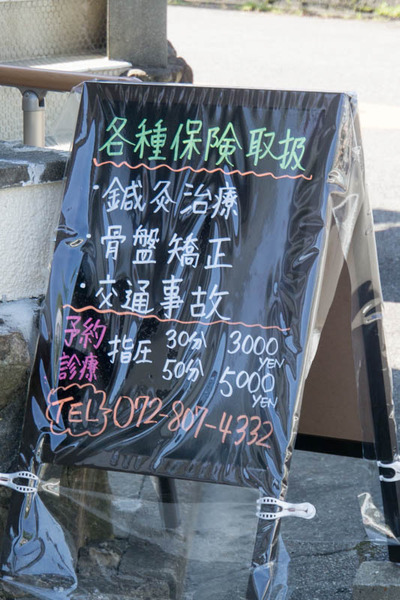 各種保険取扱
・鍼灸治療
・骨盤矯正
・交通事故
予約
診療
指圧 30分 3000YEN
50分 5000YEN
TEL 072-807-4332